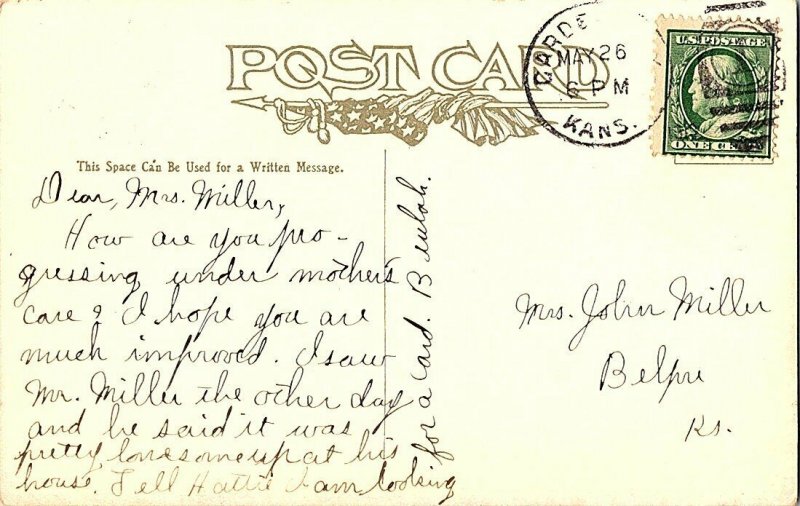 POST CARD
GARDE
MAY 26
6 PM
KANS.
U.S. POSTAGE
ONE CEN
This Space Can Be Used for a Written Message.
Dear, Mrs. Miller,
How are you pro-
gressing under mother's
care? I hope you are
much improved. I saw
Mr. Miller the other day
and he said it was
pretty lonesome up at his
house. Tell Hattie I am looking
for a card. Beulah.
Mrs. John Miller
Belpre
Ks.